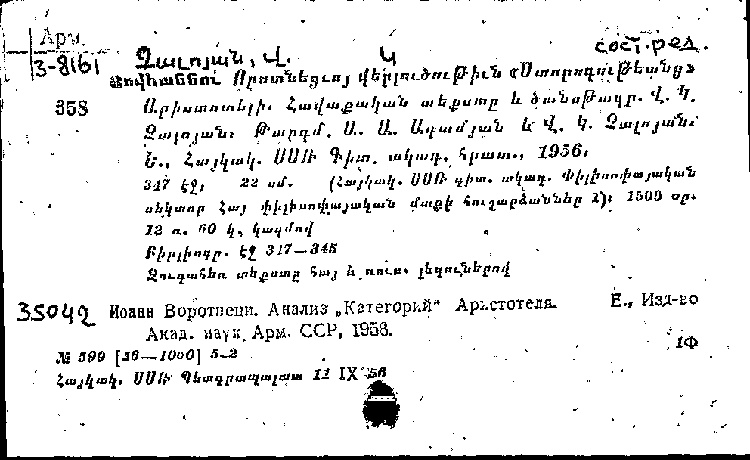 Арм.
3-8161
Չալոյան, Վ. Կ сост. ред.
Հովհաննու Որոտնեցւոյ վերլուծութիւն «Ստորոգութեանց»
358 Արիստոտելի. Հավաքական տեքստը և ծանոթագր. Վ. Կ.
Չալոյան: Թարգմ. Ս. Ա. Ավամյան և Վ. Կ. Չալոյան:
Ե., Հայկակ. ՍՍՌ Գիտ. ակադ. հրատ., 1956,
347 էջ, 22 սմ. (Հայկակ. ՍՍՌ գիտ. ակադ. Փիլիսոփայական
սեկտոր Հայ փիլիսոփայական մտքի հուշարձաններ 2): 1500 օր.
12 ռ. 60 կ, կազմով
Բիբլիոգր. էջ 317—345
Զուգահեռ տեքստը հայ և ռուս. լեզուներով
35042 Иоанн Воротнеци. Анализ „Категорий“ Аристотеля. Е., Изд-во
Акад. наук Арм. ССР, 1956.
1Ф
№ 599 [56—1000] 5-2
Հայկակ. ՍՍՌ Պետգրապալատ 11 IX 56